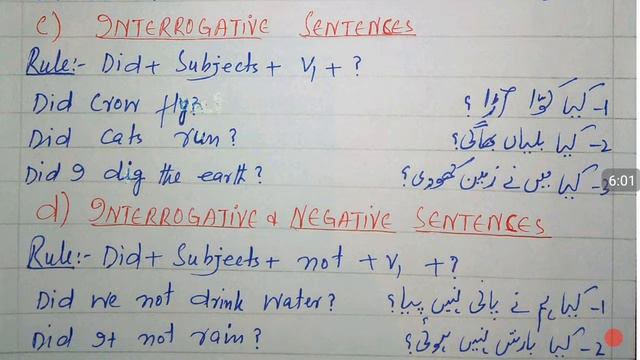 c) INTERROGATIVE SENTENCES
Rule:- Did + Subjects + V1 + ?
Did Crow fly? 1- کیا کوّا اڑا؟
Did cats run? 2- کیا بلیاں بھاگی؟
Did I dig the earth? 3- کیا میں نے زمین کھودی؟
6:01
d) INTERROGATIVE & NEGATIVE SENTENCES
Rule:- Did + Subjects + not + V1 + ?
Did we not drink water? 1- کیا ہم نے پانی نہیں پیا؟
Did It not rain? 2- کیا بارش نہیں ہوئی؟